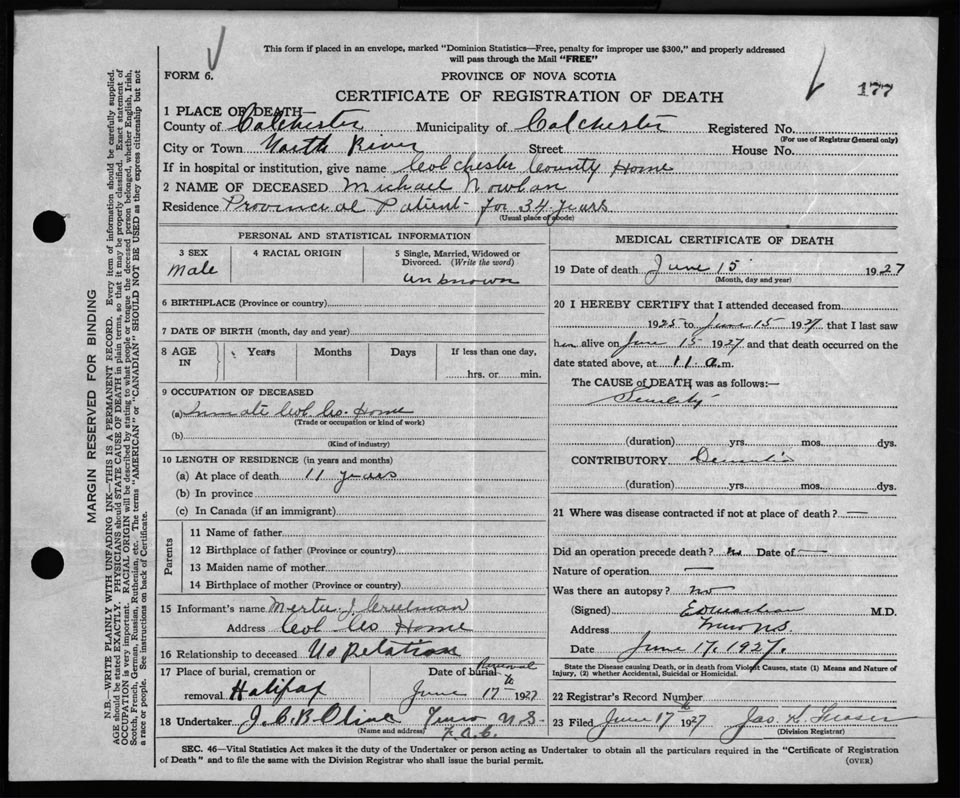 This form if placed in an envelope, marked "Dominion Statistics—Free, penalty for improper use $300," and properly addressed
will pass through the Mail "FREE"
FORM 6.
PROVINCE OF NOVA SCOTIA
CERTIFICATE OF REGISTRATION OF DEATH
177
1 PLACE OF DEATH—
County of Colchester Municipality of Colchester Registered No.
(For use of Registrar General only)
City or Town North River Street House No.
If in hospital or institution, give name Colchester County Home
2 NAME OF DECEASED Michael Nowlan
Residence Provincial Patient - for 34 years
(Usual place of abode)
PERSONAL AND STATISTICAL INFORMATION
3 SEX
Male
4 RACIAL ORIGIN
5 Single, Married, Widowed or
Divorced. (Write the word)
unknown
6 BIRTHPLACE (Province or country)
7 DATE OF BIRTH (month, day and year)
8 AGE
IN
Years Months Days If less than one day,
hrs. or min.
9 OCCUPATION OF DECEASED
(a) Inmate Col. Co. Home
(Trade or occupation or kind of work)
(b)
(Kind of industry)
10 LENGTH OF RESIDENCE (in years and months)
(a) At place of death 11 years
(b) In province
(c) In Canada (if an immigrant)
Parents
11 Name of father
12 Birthplace of father (Province or country)
13 Maiden name of mother
14 Birthplace of mother (Province or country)
15 Informant's name J. Creelman
Address Col Co Home
16 Relationship to deceased No Relation
17 Place of burial, cremation or
removal Halifax
Date of burial Removal to
June 17 1927
18 Undertaker J. C. B. Olive Truro N.S.
(Name and address)
MEDICAL CERTIFICATE OF DEATH
19 Date of death June 15 1927
(Month, day and year)
20 I HEREBY CERTIFY that I attended deceased from
1925 to June 15 1927 that I last saw
him alive on June 15 1927 and that death occurred on the
date stated above, at 11 a.m.
The CAUSE of DEATH was as follows:—
Senility
(duration) yrs. mos. dys.
CONTRIBUTORY Dementia
(duration) yrs. mos. dys.
21 Where was disease contracted if not at place of death? —
Did an operation precede death? no Date of —
Nature of operation —
Was there an autopsy? no
(Signed) M.D.
Address Truro N.S.
Date June 17. 1927.
State the Disease causing Death, or in death from Violent Causes, state (1) Means and Nature of
Injury, (2) whether Accidental, Suicidal or Homicidal.
22 Registrar's Record Number
23 Filed June 17 1927 Jas. K. Fraser
(Division Registrar)
SEC. 46—Vital Statistics Act makes it the duty of the Undertaker or person acting as Undertaker to obtain all the particulars required in the "Certificate of Registration
of Death" and to file the same with the Division Registrar who shall issue the burial permit.
(OVER)
MARGIN RESERVED FOR BINDING
N.B.—WRITE PLAINLY WITH UNFADING INK—THIS IS A PERMANENT RECORD. Every item of information should be carefully supplied.
AGE should be stated EXACTLY. PHYSICIANS should STATE CAUSE OF DEATH in plain terms, so that it may be properly classified. Exact statement of
OCCUPATION is very important. RACIAL ORIGIN will be described by stating to what people or tongue the deceased person belonged, whether English, Irish,
Scotch, French, German, Russian, Ruthenian, etc. The terms "AMERICAN" or "CANADIAN" SHOULD NOT BE USED as they express citizenship but not
a race or people. See instructions on back of Certificate.